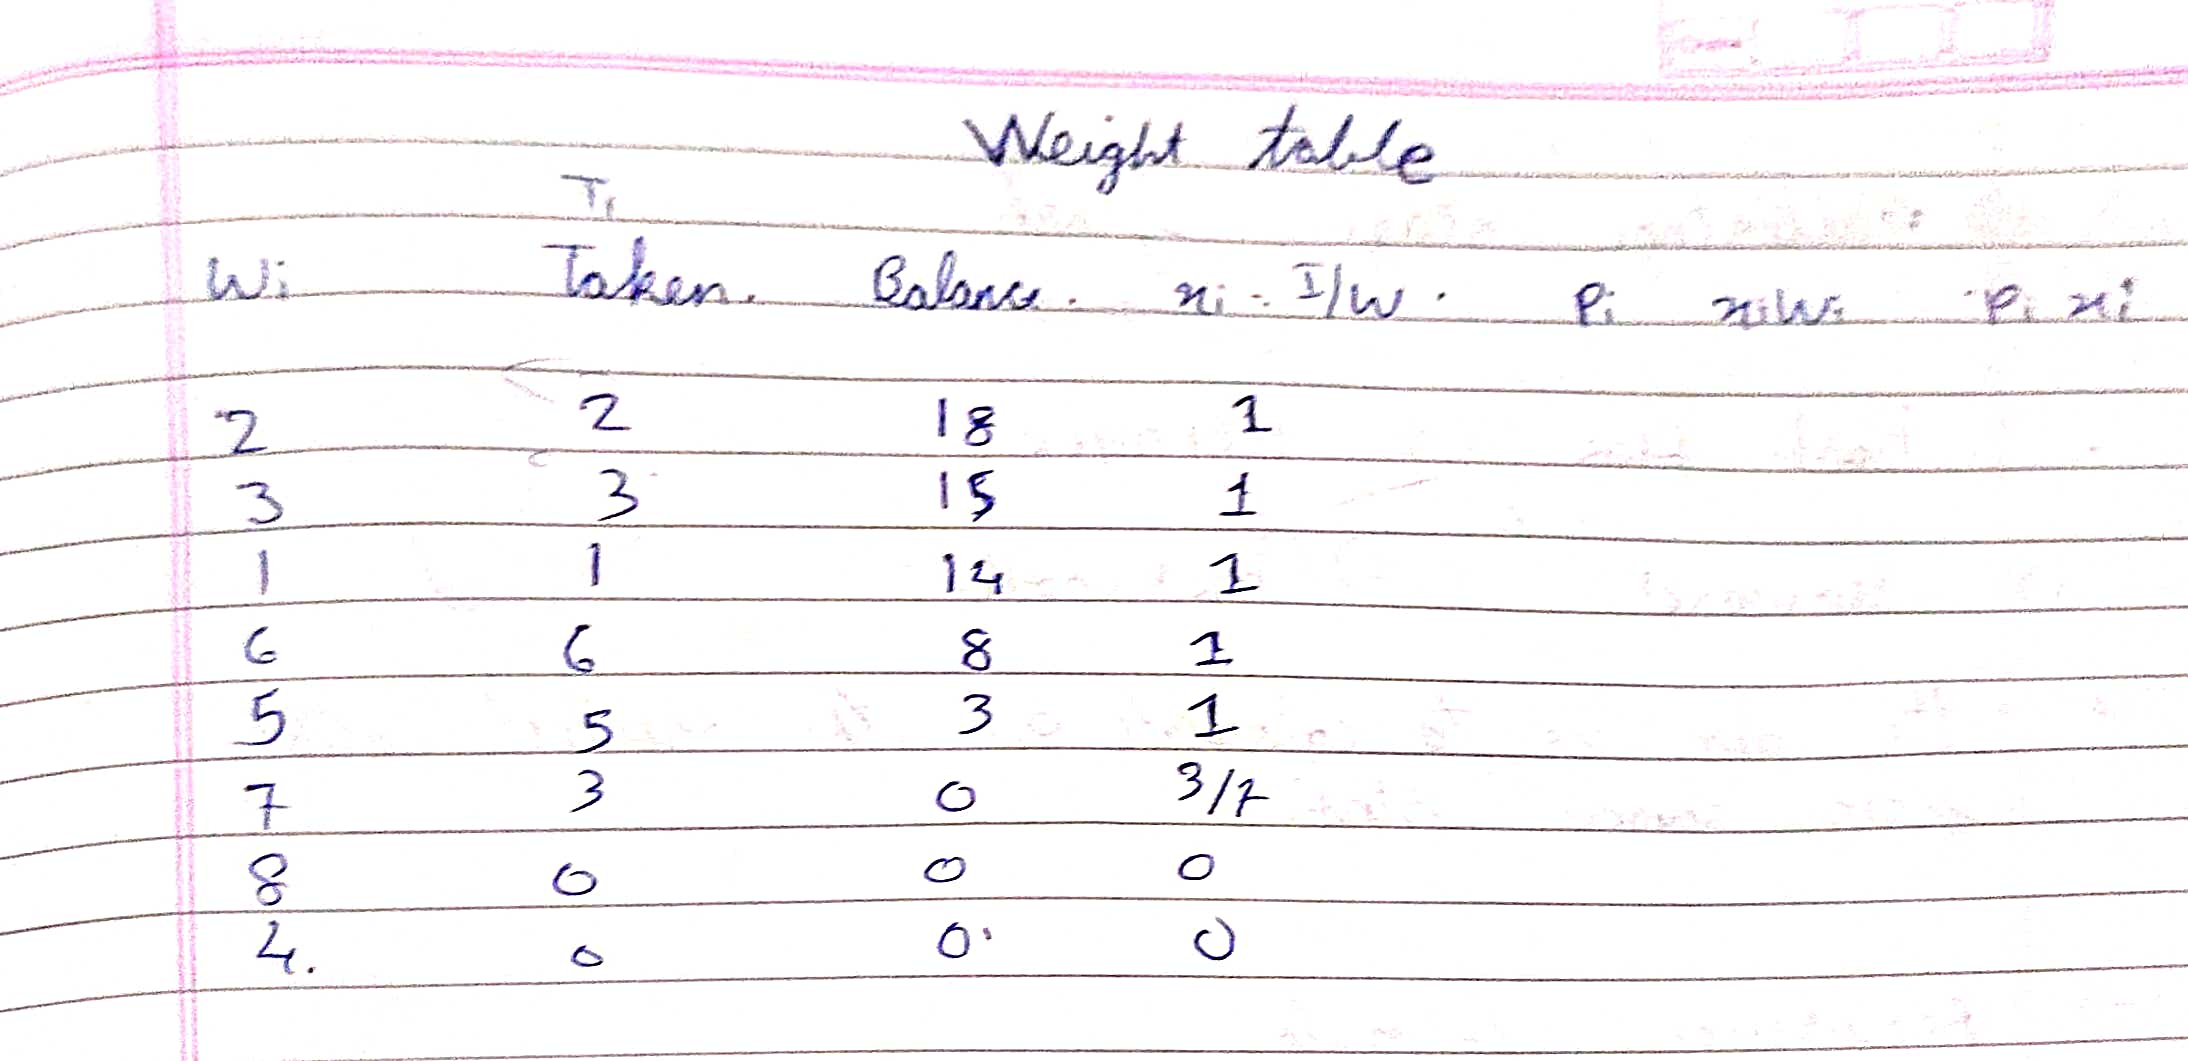 Weight table
Ti
Wi Taken. Balance. xi = I/W. Pi xiWi Pi xi
2 2 18 1
3 3 15 1
1 1 14 1
6 6 8 1
5 5 3 1
7 3 0 3/7
8 0 0 0
4. 0 0. 0